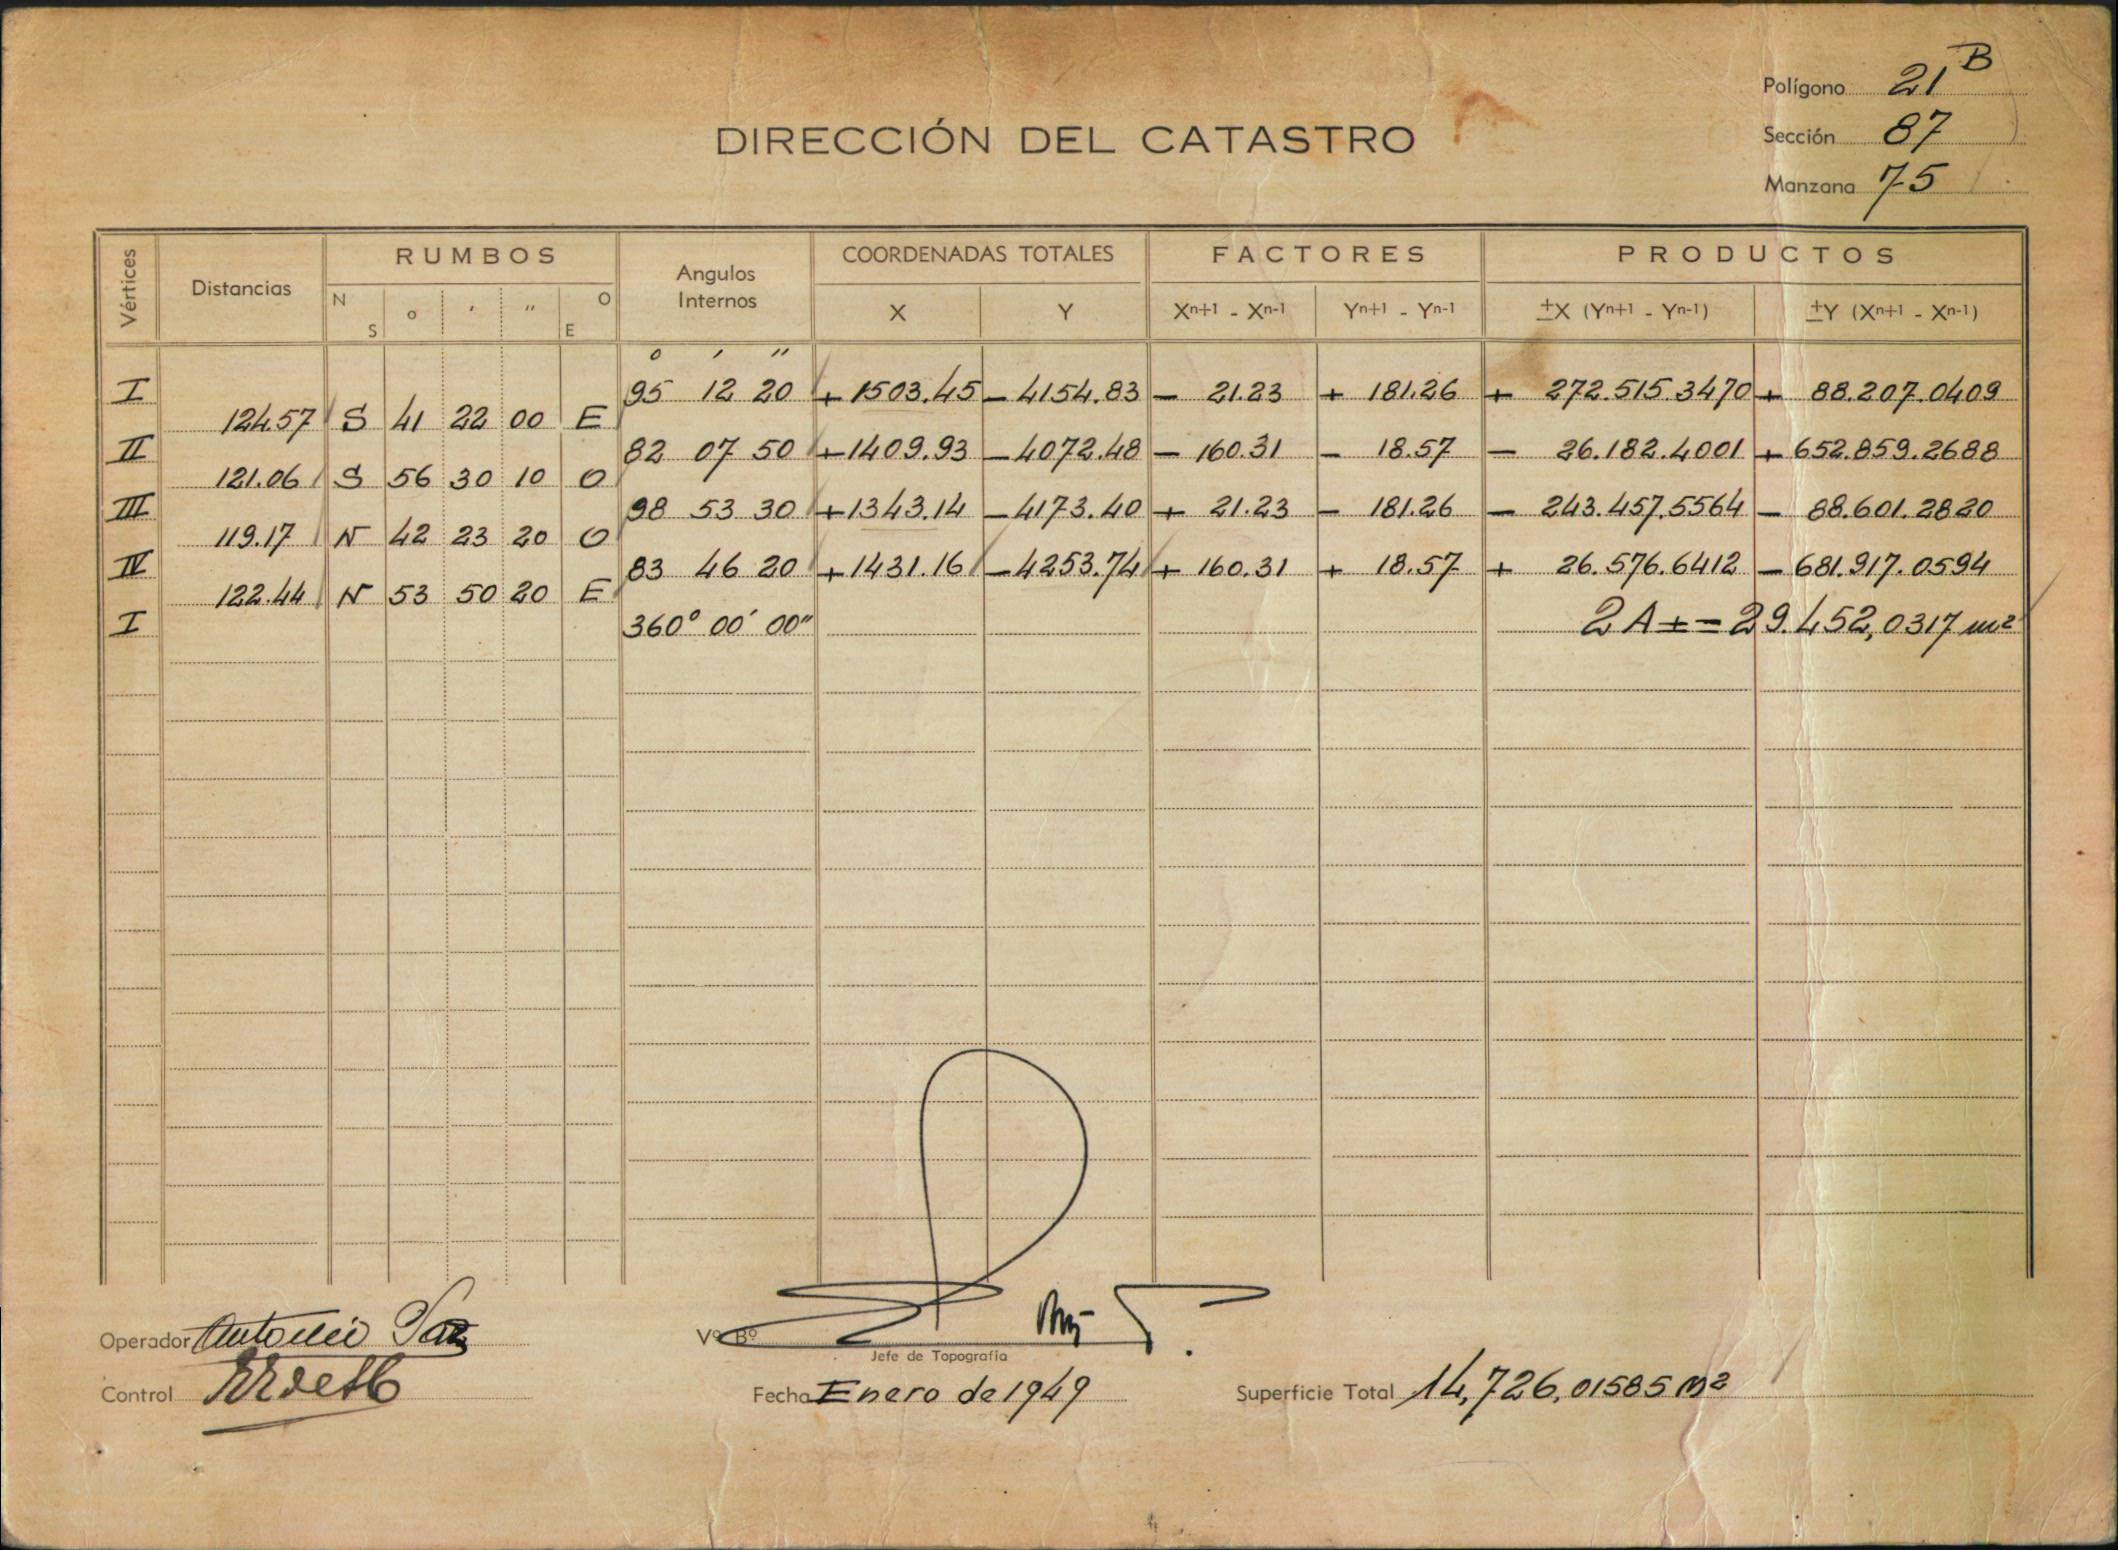 Polígono 21 B
DIRECCIÓN DEL CATASTRO
Sección 87
Manzana 75
Vértices Distancias RUMBOS Angulos Internos COORDENADAS TOTALES FACTORES PRODUCTOS
N S o ' " O E X Y Xn+1 - Xn-1 Yn+1 - Yn-1 ±X (Yn+1 - Yn-1) ±Y (Xn+1 - Xn-1)
o ' "
I 95 12 20 + 1503.45 - 4154.83 - 21.23 + 181.26 + 272.515.3470 + 88.207.0409
124.57 S 41 22 00 E
II 82 07 50 + 1409.93 - 4072.48 - 160.31 - 18.57 - 26.182.4001 + 652.859.2688
121.06 S 56 30 10 O
III 98 53 30 + 1343.14 - 4173.40 + 21.23 - 181.26 - 243.457.5564 - 88.601.2820
119.17 N 42 23 20 O
IV 83 46 20 + 1431.16 - 4253.74 + 160.31 + 18.57 + 26.576.6412 - 681.917.0594
122.44 N 53 50 20 E
I 360° 00' 00" 2A ± = 29.452,0317 m²
Operador Antonio
Vº Bº
Jefe de Topografía
Control
Fecha Enero de 1949
Superficie Total 14,726,01585 m²